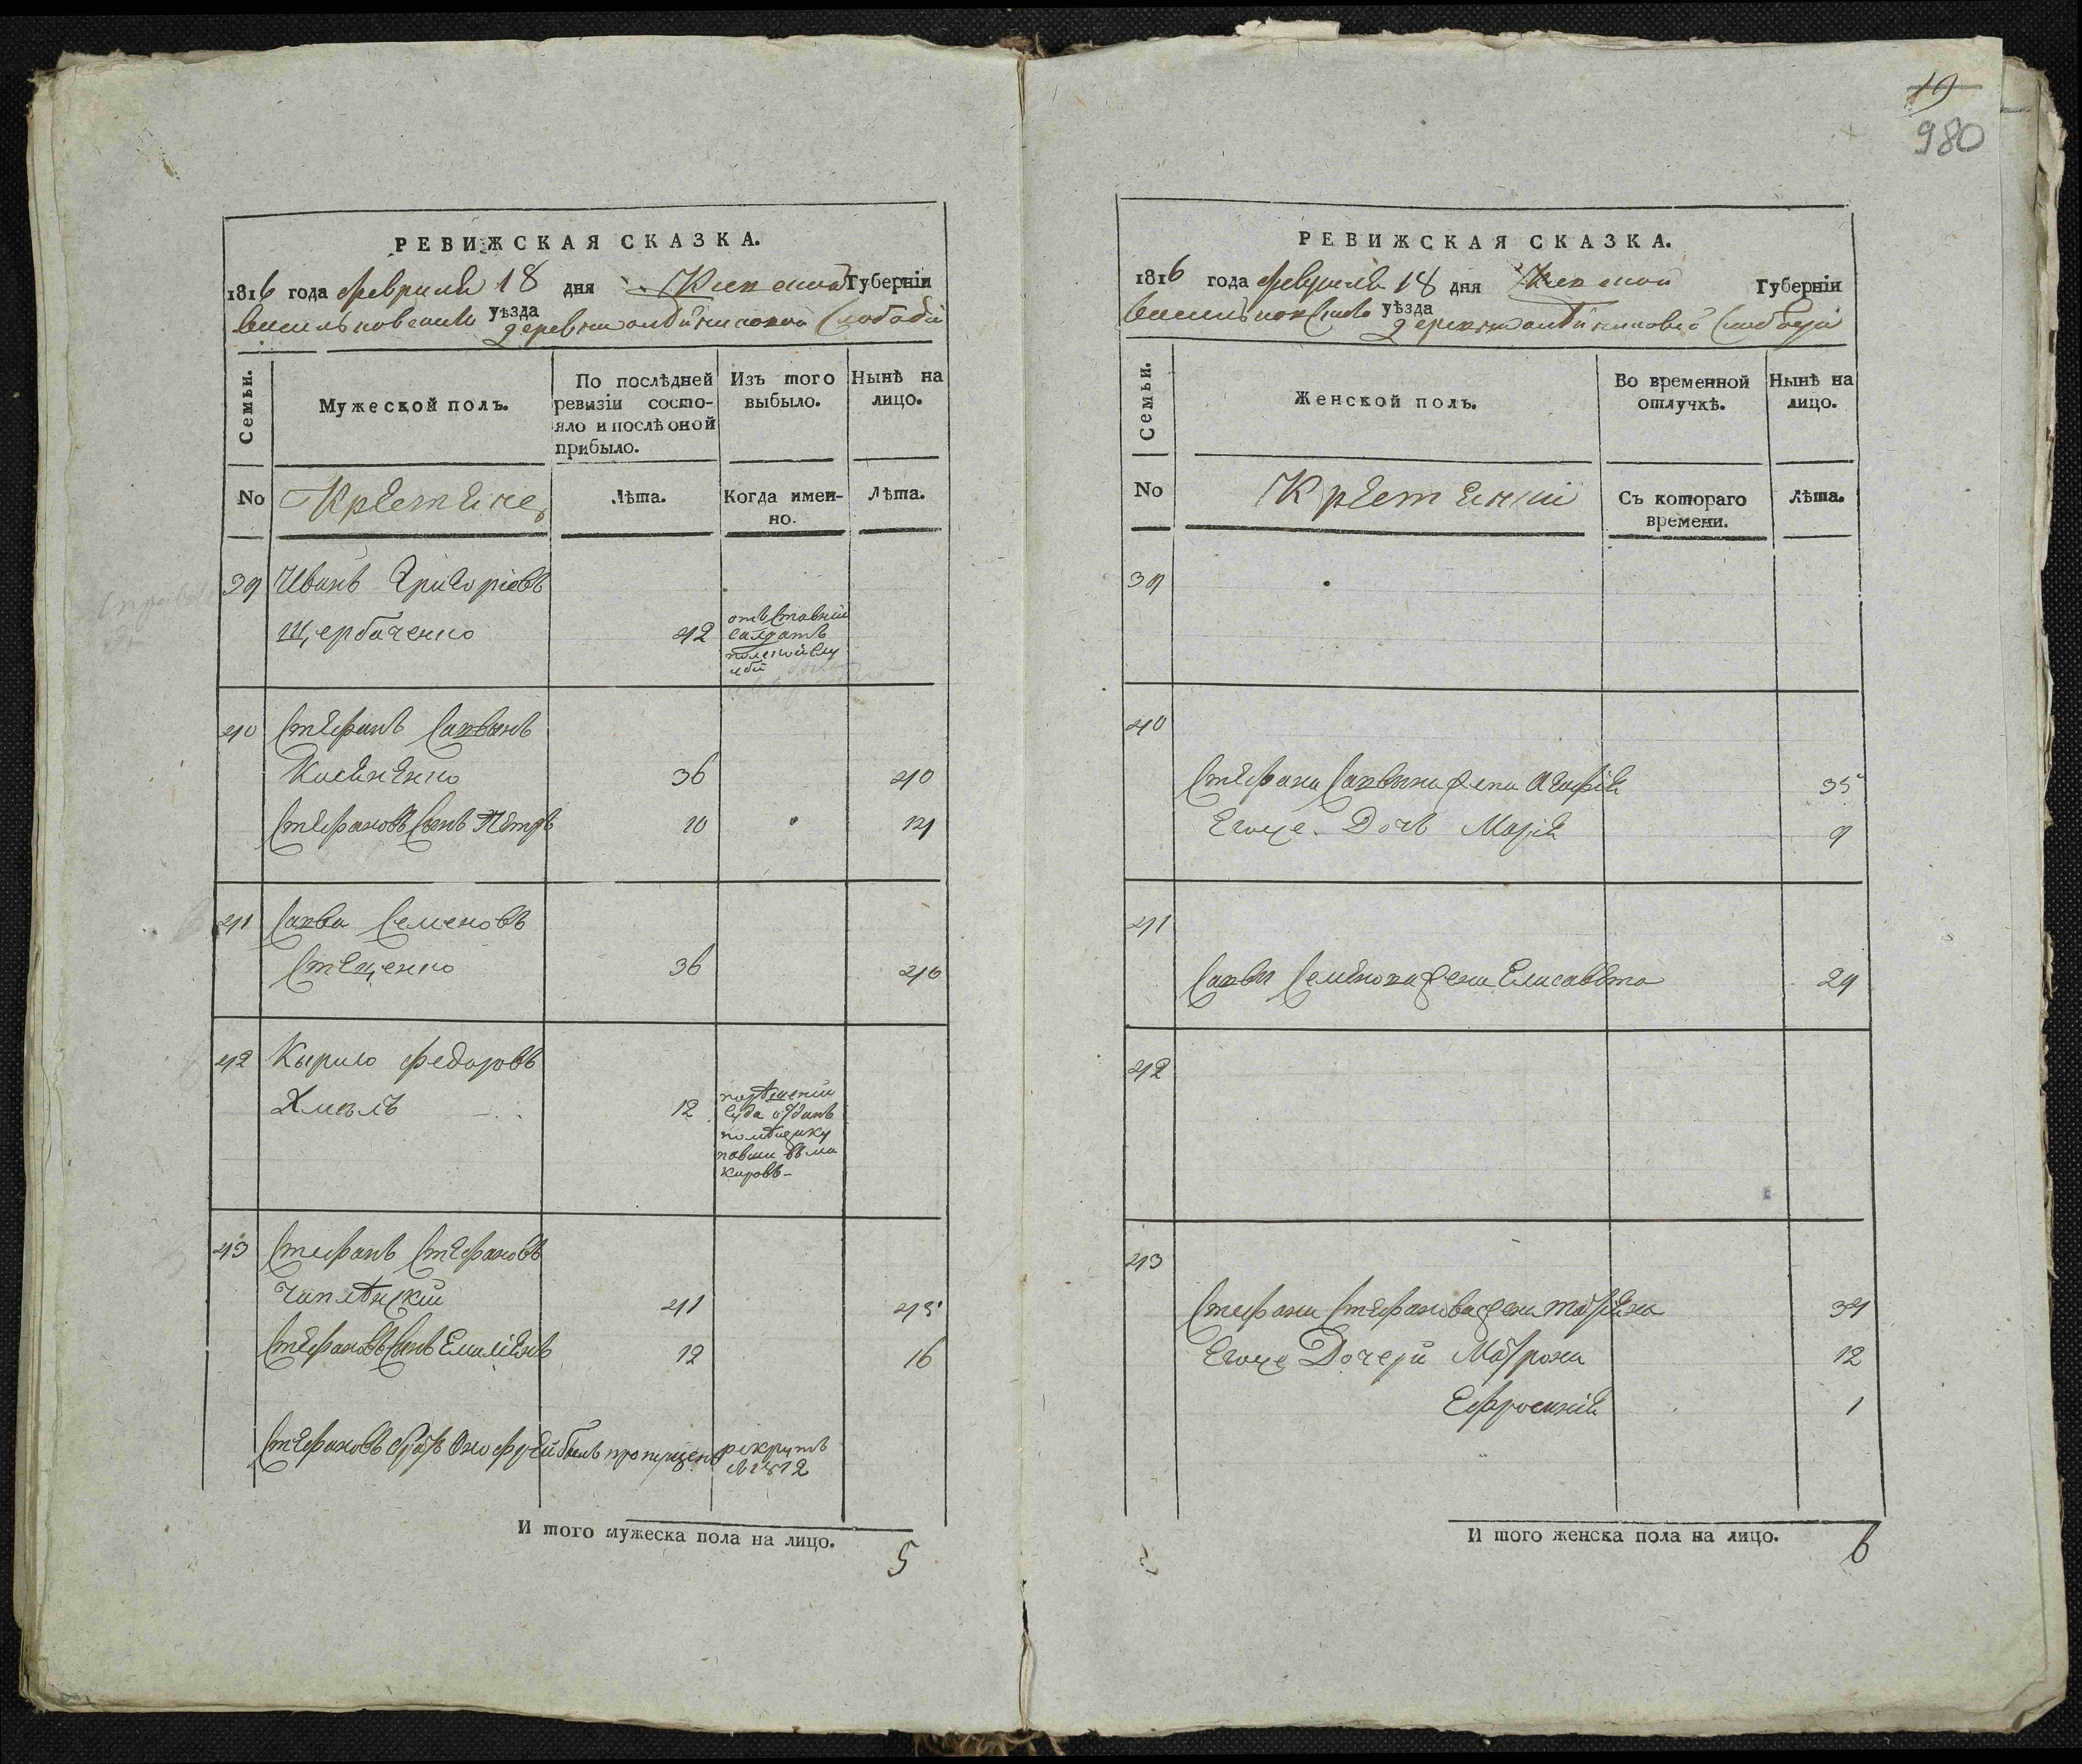 19
980
РЕВИЖСКАЯ СКАЗКА.
1816 года февраля 18 дня Киевской Губерніи
Васильковскаго уѣзда деревни Слободы
Семьи.
Мужеской полъ.
По послѣдней ревизіи состояло и послѣ оной прибыло.
Изъ того выбыло.
Нынѣ на лицо.
No
Крестьяне
Лѣта.
Когда именно.
Лѣта.
39 Иванъ Григоріевъ
Щербаченко 42 отъставній
салдатъ
40 Стефанъ Саввинъ
36 40
Стефановъ Сынъ Петръ 10 14
41 Савва Семеновъ
Стеценко 36 40
42 Кырило Федоровъ
Хмель 12 по рѣшенію
суда отданъ
помѣщику
43 Стефанъ Стефановъ
Чаплѣнскій 41 45
Стефановъ Сынъ Емиліянъ 12 16
Стефановъ братъ Онофрей былъ пропущенъ рекрутъ
1812
И того мужеска пола на лицо. 5
РЕВИЖСКАЯ СКАЗКА.
1816 года февраля 18 дня Киевской Губерніи
Васильковскаго уѣзда деревни Слободы
Семьи.
Женской полъ.
Во временной отлучкѣ.
Нынѣ на лицо.
No
Крестьянки
Съ котораго времени.
Лѣта.
39
40
Стефана Саввина жена Агафія 35
Егоже Дочь Марія 9
41
Саввы Семенова жена Елисавета 29
42
43
Стефана Стефанова жена 34
Егоже Дочери Матрона 12
Ефросинія 1
И того женска пола на лицо. 6